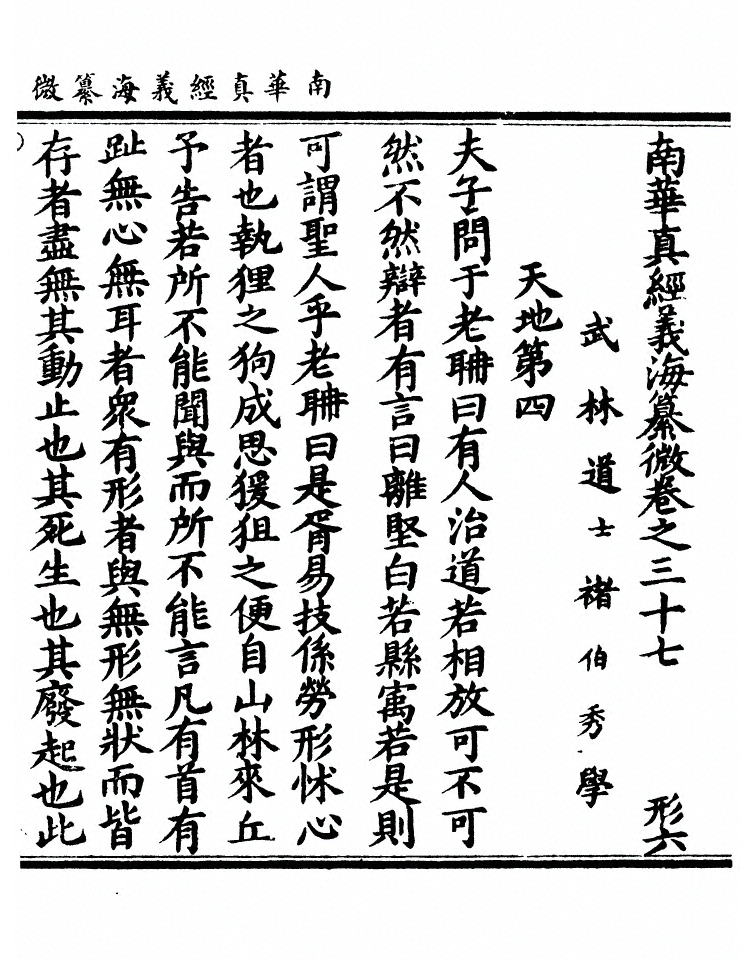 南華真經義海纂微
南華真經義海纂微卷之三十七　形六
武林道士褚伯秀學
天地第四
夫子問于老聃曰有人治道若相放可不可
然不然辯者有言曰離堅白若縣寓若是則
可謂聖人乎老聃曰是胥易技係勞形怵心
者也執狸之狗成思猨狙之便自山林來丘
予告若所不能聞與而所不能言凡有首有
趾無心無耳者衆有形者與無形無狀而皆
存者盡無其動止也其死生也其廢起也此